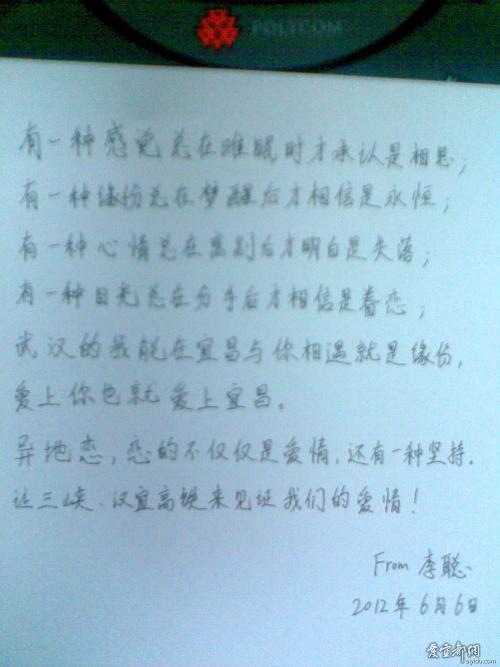 POLYCOM
有一种感觉总在难眠时才承认是相思；
有一种缘份总在梦醒后才相信是永恒；
有一种心情总在离别后才明白是失落；
有一种目光总在分手后才相信是眷恋；
武汉的我能在宜昌与你相遇就是缘份，
爱上你也就爱上宜昌。
异地恋，恋的不仅仅是爱情，还有一种坚持。
让三峡、汉宜高铁来见证我们的爱情！
From 李聪
2012年6月6日
爱宜都网